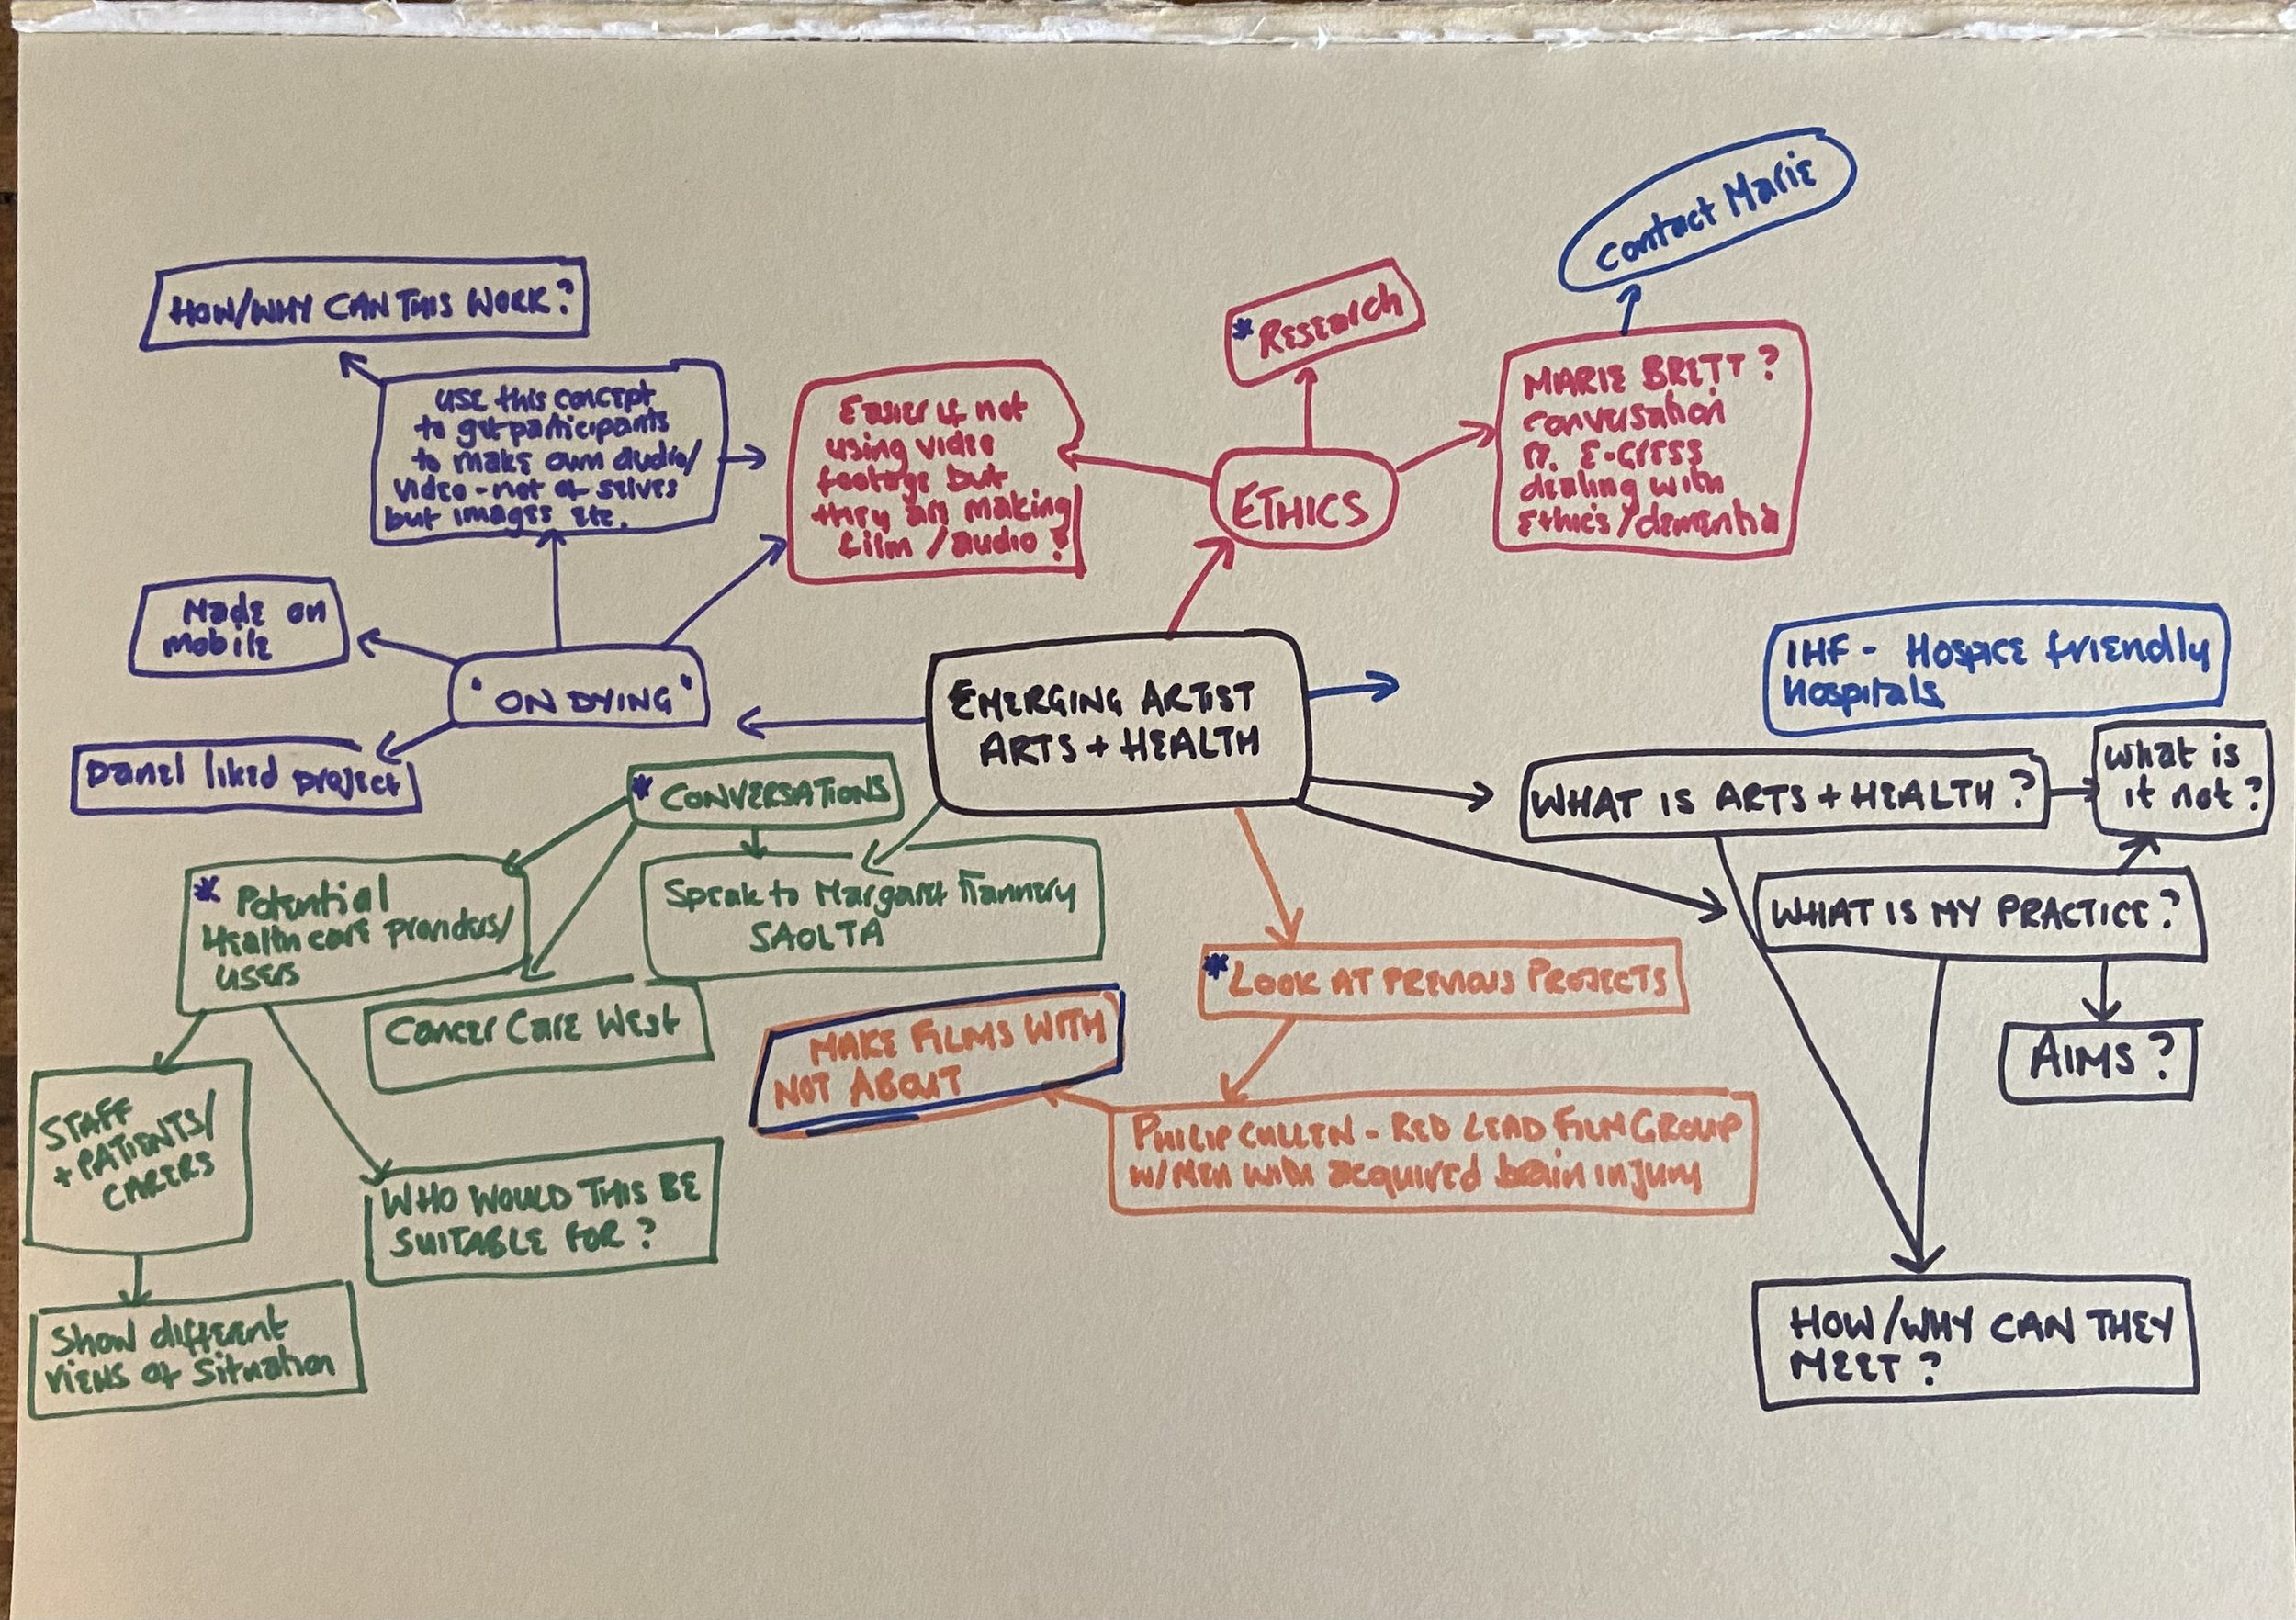 contact Marie
HOW/WHY CAN THIS WORK?
* RESEARCH
USE this concept
to get participants
to make own audio/
video - not of selves
but images etc.
Easier if not
using video
footage but
they are making
film / audio?
ETHICS
MARIE BRETT?
conversation
r. E-gress
dealing with
Ethics/dementia
Made on
mobile
'ON DYING'
Daniel liked project
EMERGING ARTIST
ARTS + HEALTH
IHF - Hospice friendly
hospitals
WHAT IS ARTS + HEALTH?
What is
it not?
* CONVERSATIONS
Speak to Margaret Flannery
SAOLTA
* Potential
Healthcare providers/
users
Cancer Care West
STAFF
+ PATIENTS/
CARERS
WHO WOULD THIS BE
SUITABLE FOR?
Show different
views of situation
* LOOK AT PREVIOUS PROJECTS
MAKE FILMS WITH
NOT ABOUT
PHILIP CULLEN - RED LEAD FILM GROUP
w/MEN with acquired brain injury
WHAT IS MY PRACTICE?
AIMS?
HOW/WHY CAN THEY
MEET?